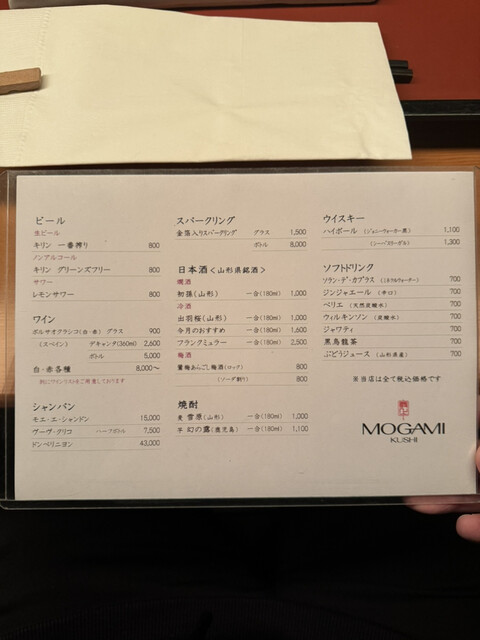 ビール
生ビール
キリン 一番搾り 800
ノンアルコール
キリン グリーンズフリー 800
サワー
レモンサワー 800
ワイン
ボルサオクラシコ(白・赤) グラス 900
(スペイン) デキャンタ(360ml) 2,600
ボトル 5,000
白・赤各種 8,000〜
別にワインリストをご用意しております
シャンパン
モエ・エ・シャンドン 15,000
ヴーヴ・クリコ ハーフボトル 7,500
ドンペリニヨン 43,000
スパークリング
金箔入りスパークリング グラス 1,500
ボトル 8,000
日本酒<山形県銘酒>
燗酒
初孫(山形) 一合(180ml) 1,000
冷酒
出羽桜(山形) 一合(180ml) 1,000
今月のおすすめ 一合(180ml) 1,600
フランクミュラー 一合(180ml) 2,500
梅酒
鶯梅あらごし梅酒(ロック) 800
(ソーダ割り) 800
焼酎
麦 雪原(山形) 一合(180ml) 1,000
芋 幻の露(鹿児島) 一合(180ml) 1,100
ウイスキー
ハイボール (ジョニーウォーカー黒) 1,100
(シーバスリーガル) 1,300
ソフトドリンク
ソラン・デ・カブラス (ミネラルウォーター) 700
ジンジャエール (辛口) 700
ペリエ (天然炭酸水) 700
ウィルキンソン (炭酸水) 700
ジャワティ 700
黒烏龍茶 700
ぶどうジュース (山形県産) 700
※当店は全て税込価格です
MOGAMI
KUSHI